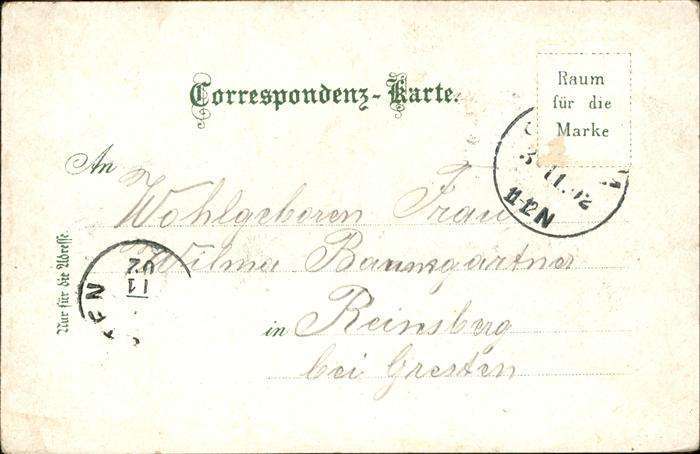 Correspondenz-Karte.
Raum
für die
Marke
11.02
11-12N
An
Wohlgeboren Frau
Wilma Baumgartner
in Reinsberg
bei Gresten
Nur für die Adresse.
11
02